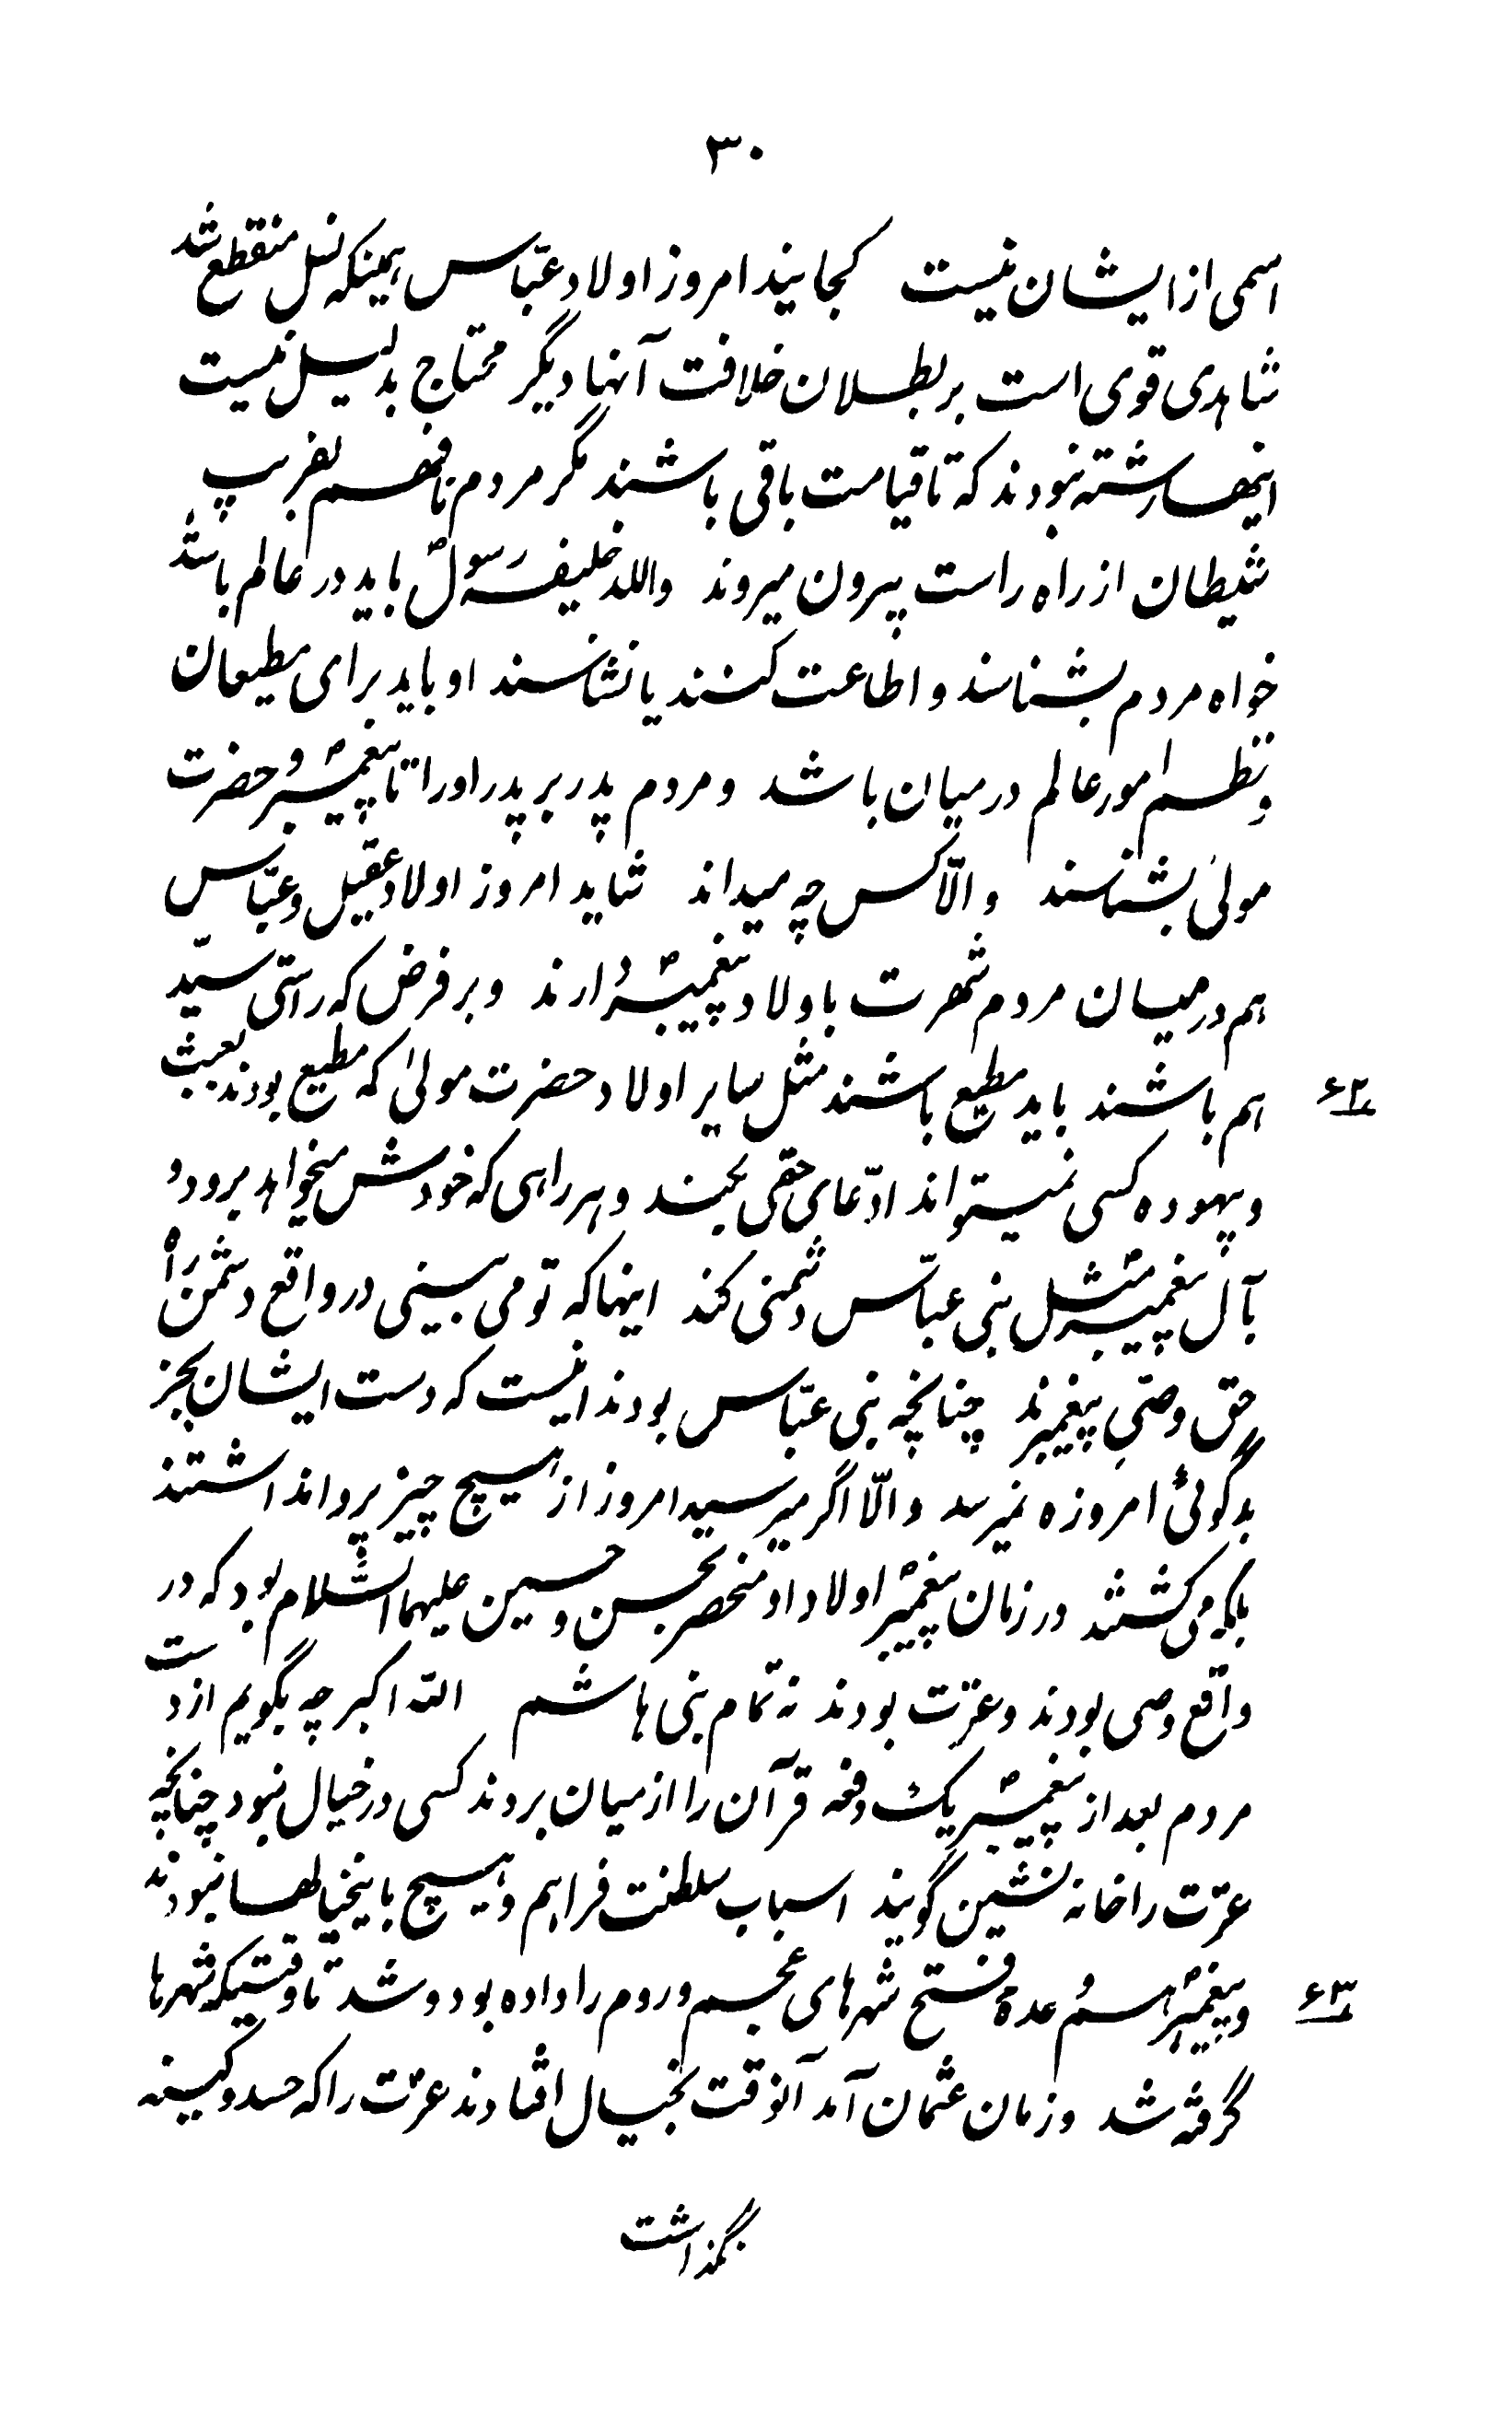 ۳۰
اسمی از ایشان نیست کجایند امروز اولاد عبّاس همینکه نسل منقطع شد
شاهدی قوی است بر بطلان خلافت آنها دیگر محتاج بدلیل نیست
اینها رشته نبودند که تا قیامت باقی باشند مگر مردم نافهم بفریب
شیطان از راه راست بیرون میروند والله خلیفه رسولؐ باید در عالم باشد
خواه مردم بشناسند و اطاعت کنند یا نشناسند او باید برای مطیعان
و نظم امور عالم در میان باشد و مردم پدر بر پدر او را تا پیغمبرؐ و حضرت
مولیٰ بشناسند و الّا کس چه میداند شاید امروز اولاد عقیل و عبّاس
هم در میان مردم شهرت باولاد پیغمبرؐ دارند و بر فرض که راستی سیّد
هم باشند باید مطیع باشند مثل سایر اولاد حضرت مولیٰ که مطیع بودند بعبث
۶۲
و بیهوده کسی نمیتواند ادّعای حقی بکند و هر راهی که خودش میخواهد برود و
بآل پیغمبرؐ مثل بنی عبّاس دشمنی کند اینها که تو می بینی در واقع دشمن راه
حق و وصّی پیغمبرند چنانچه بنی عبّاس بودند اینست که دست ایشان بجز
بدگوئی امروزه نمیرسد و الّا اگر میرسید امروز از هیچ چیز پروا نداشتند
بلکه می کشتند در زمان پیغمبرؐ اولاد او منحصر بحسن و حسین علیهما السّلام بود که در
واقع وصی بودند و عترت بودند نه تمام بنی هاشم الله اکبر چه بگویم از دست
مردم بعد از پیغمبرؐ یک دفعه قرآن را از میان بردند کسی در خیال نبود چنانچه
عترت را خانه نشین گویند اسباب سلطنت فراهم و هیچ باینخیالها نبودند
و پیغمبرؐ هم وعدهٔ فتح شهرهای عجم و روم را داده بود و شد تا وقتیکه شهرها
۶۳
گرفته شد و زمان عثمان آمد آنوقت بخیال افتادند عترت را که حسد و کینه
نگذاشت